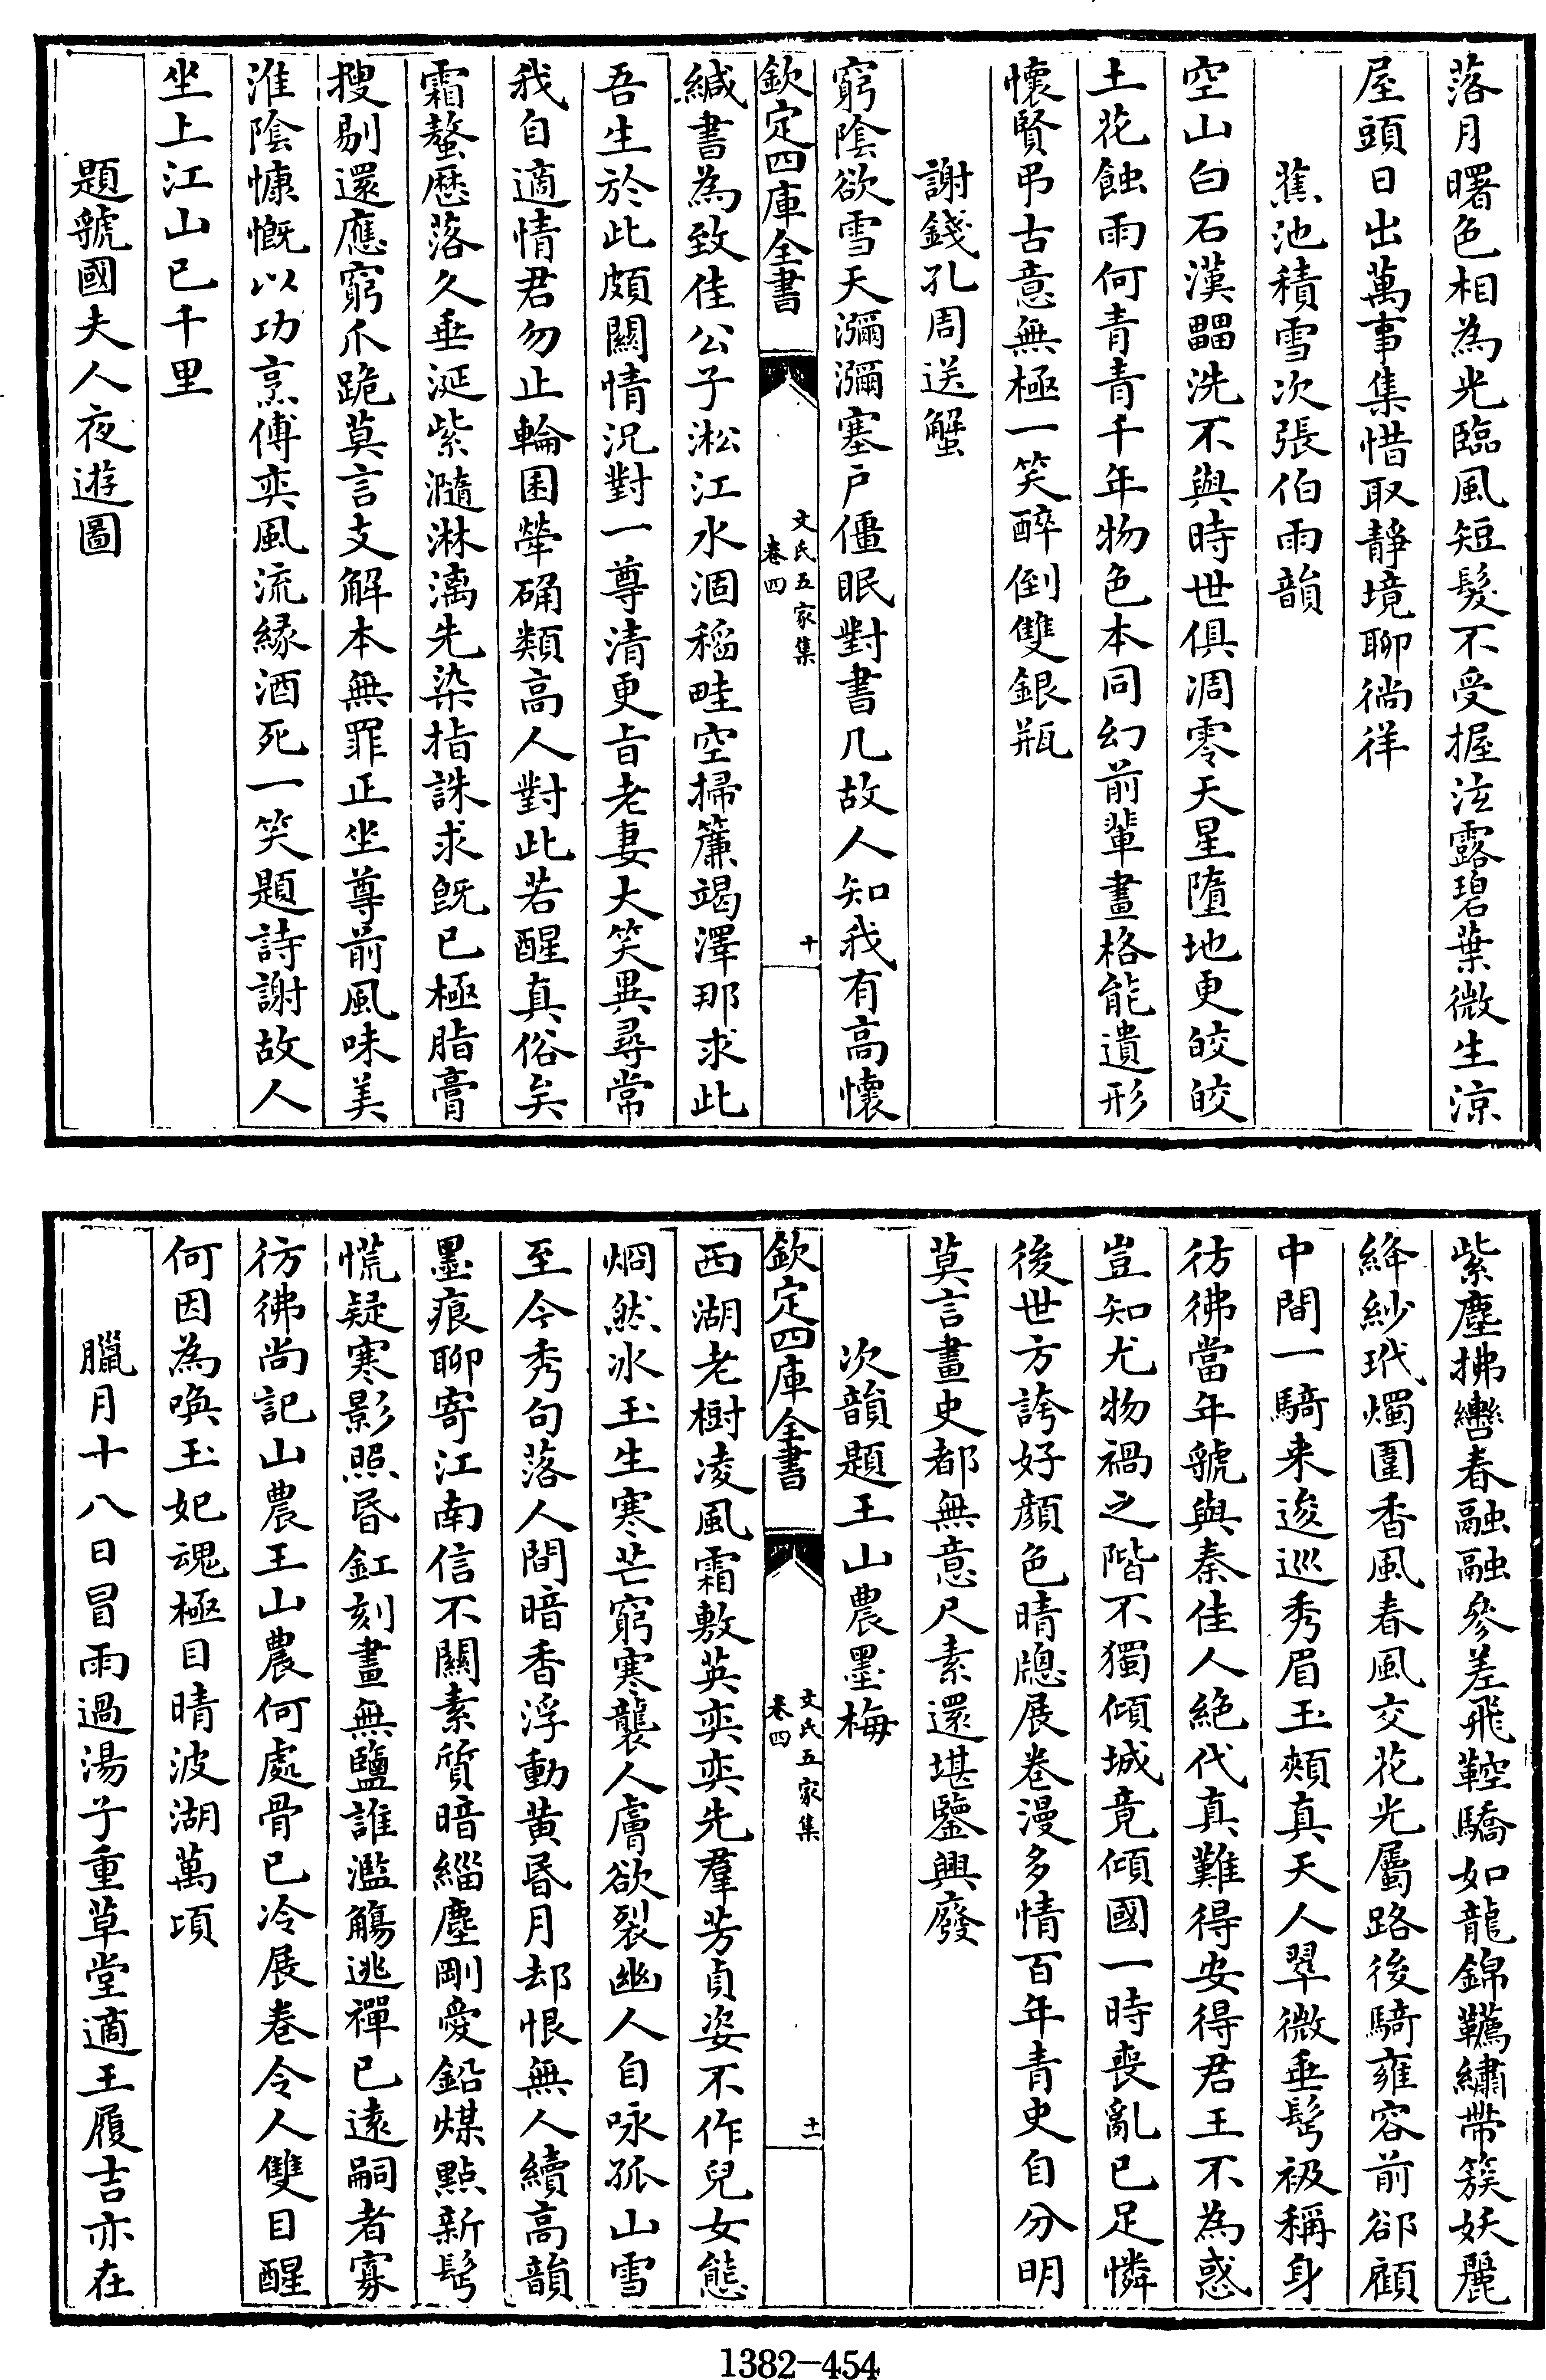 落月曙色相為光臨風短髮不受握泫露碧葉微生涼
屋頭日出萬事集惜取靜境聊徜徉
蕉池積雪次張伯雨韻
空山白石漢罍洗不與時世俱凋零天星墮地更皎皎
土花蝕雨何青青千年物色本同幻前輩畫格能遺形
懷賢弔古意無極一笑醉倒雙銀瓶
謝錢孔周送蟹
窮陰欲雪天瀰瀰塞戶僵眠對書几故人知我有高懷
欽定四庫全書
文氏五家集
卷四
十
緘書為致佳公子淞江水涸稻畦空掃簾竭澤那求此
吾生於此頗關情況對一尊清更旨老妻大笑異尋常
我自適情君勿止輪囷犖确類高人對此若醒真俗矣
霜螯歷落久垂涎紫瀡淋漓先染指誅求既已極脂膏
搜剔還應窮爪跪莫言支解本無罪正坐尊前風味美
淮陰慷慨以功烹傅奕風流緣酒死一笑題詩謝故人
坐上江山已千里
題虢國夫人夜遊圖
紫塵拂轡春融融參差飛鞚驕如龍錦韉繡帶簇妖麗
絳紗玳燭圍香風春風交花光屬路後騎雍容前郤顧
中間一騎来逡巡秀眉玉頰真天人翠微垂髩衱稱身
彷彿當年虢與秦佳人絕代真難得安得君王不為惑
豈知尤物禍之階不獨傾城竟傾國一時喪亂已足憐
後世方誇好顏色晴牕展卷漫多情百年青史自分明
莫言畫史都無意尺素還堪鑒興廢
次韻題王山農墨梅
欽定四庫全書
文氏五家集
卷四
十一
西湖老樹凌風霜敷英奕奕先羣芳貞姿不作兒女態
烱然冰玉生寒芒窮寒襲人膚欲裂幽人自咏孤山雪
至今秀句落人間暗香浮動黄昏月却恨無人續高韻
墨痕聊寄江南信不關素質暗緇塵剛愛鉛煤點新髩
慌疑寒影照昏釭刻畫無鹽誰濫觴逃禪已遠嗣者寡
彷彿尚記山農王山農何處骨已冷展卷令人雙目醒
何因為喚玉妃魂極目晴波湖萬頃
臘月十八日冒雨過湯子重草堂適王履吉亦在
1382-454